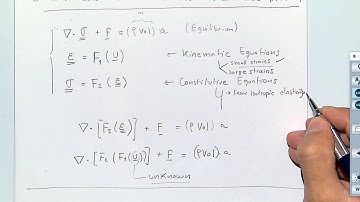 ∇· σ + F = (ρ Vol) a (Equilibrium)
ε = F₁ (U) ← Kinematic Equations
small strains ✓
large strains
σ = F₂ (ε) ← Constitutive Equations
→ linear isotropic elasticity
∇· [F₂ (ε)] + F = (ρ Vol) a
∇· [F₂ (F₁ (U))] + F = (ρ Vol) a
unknown